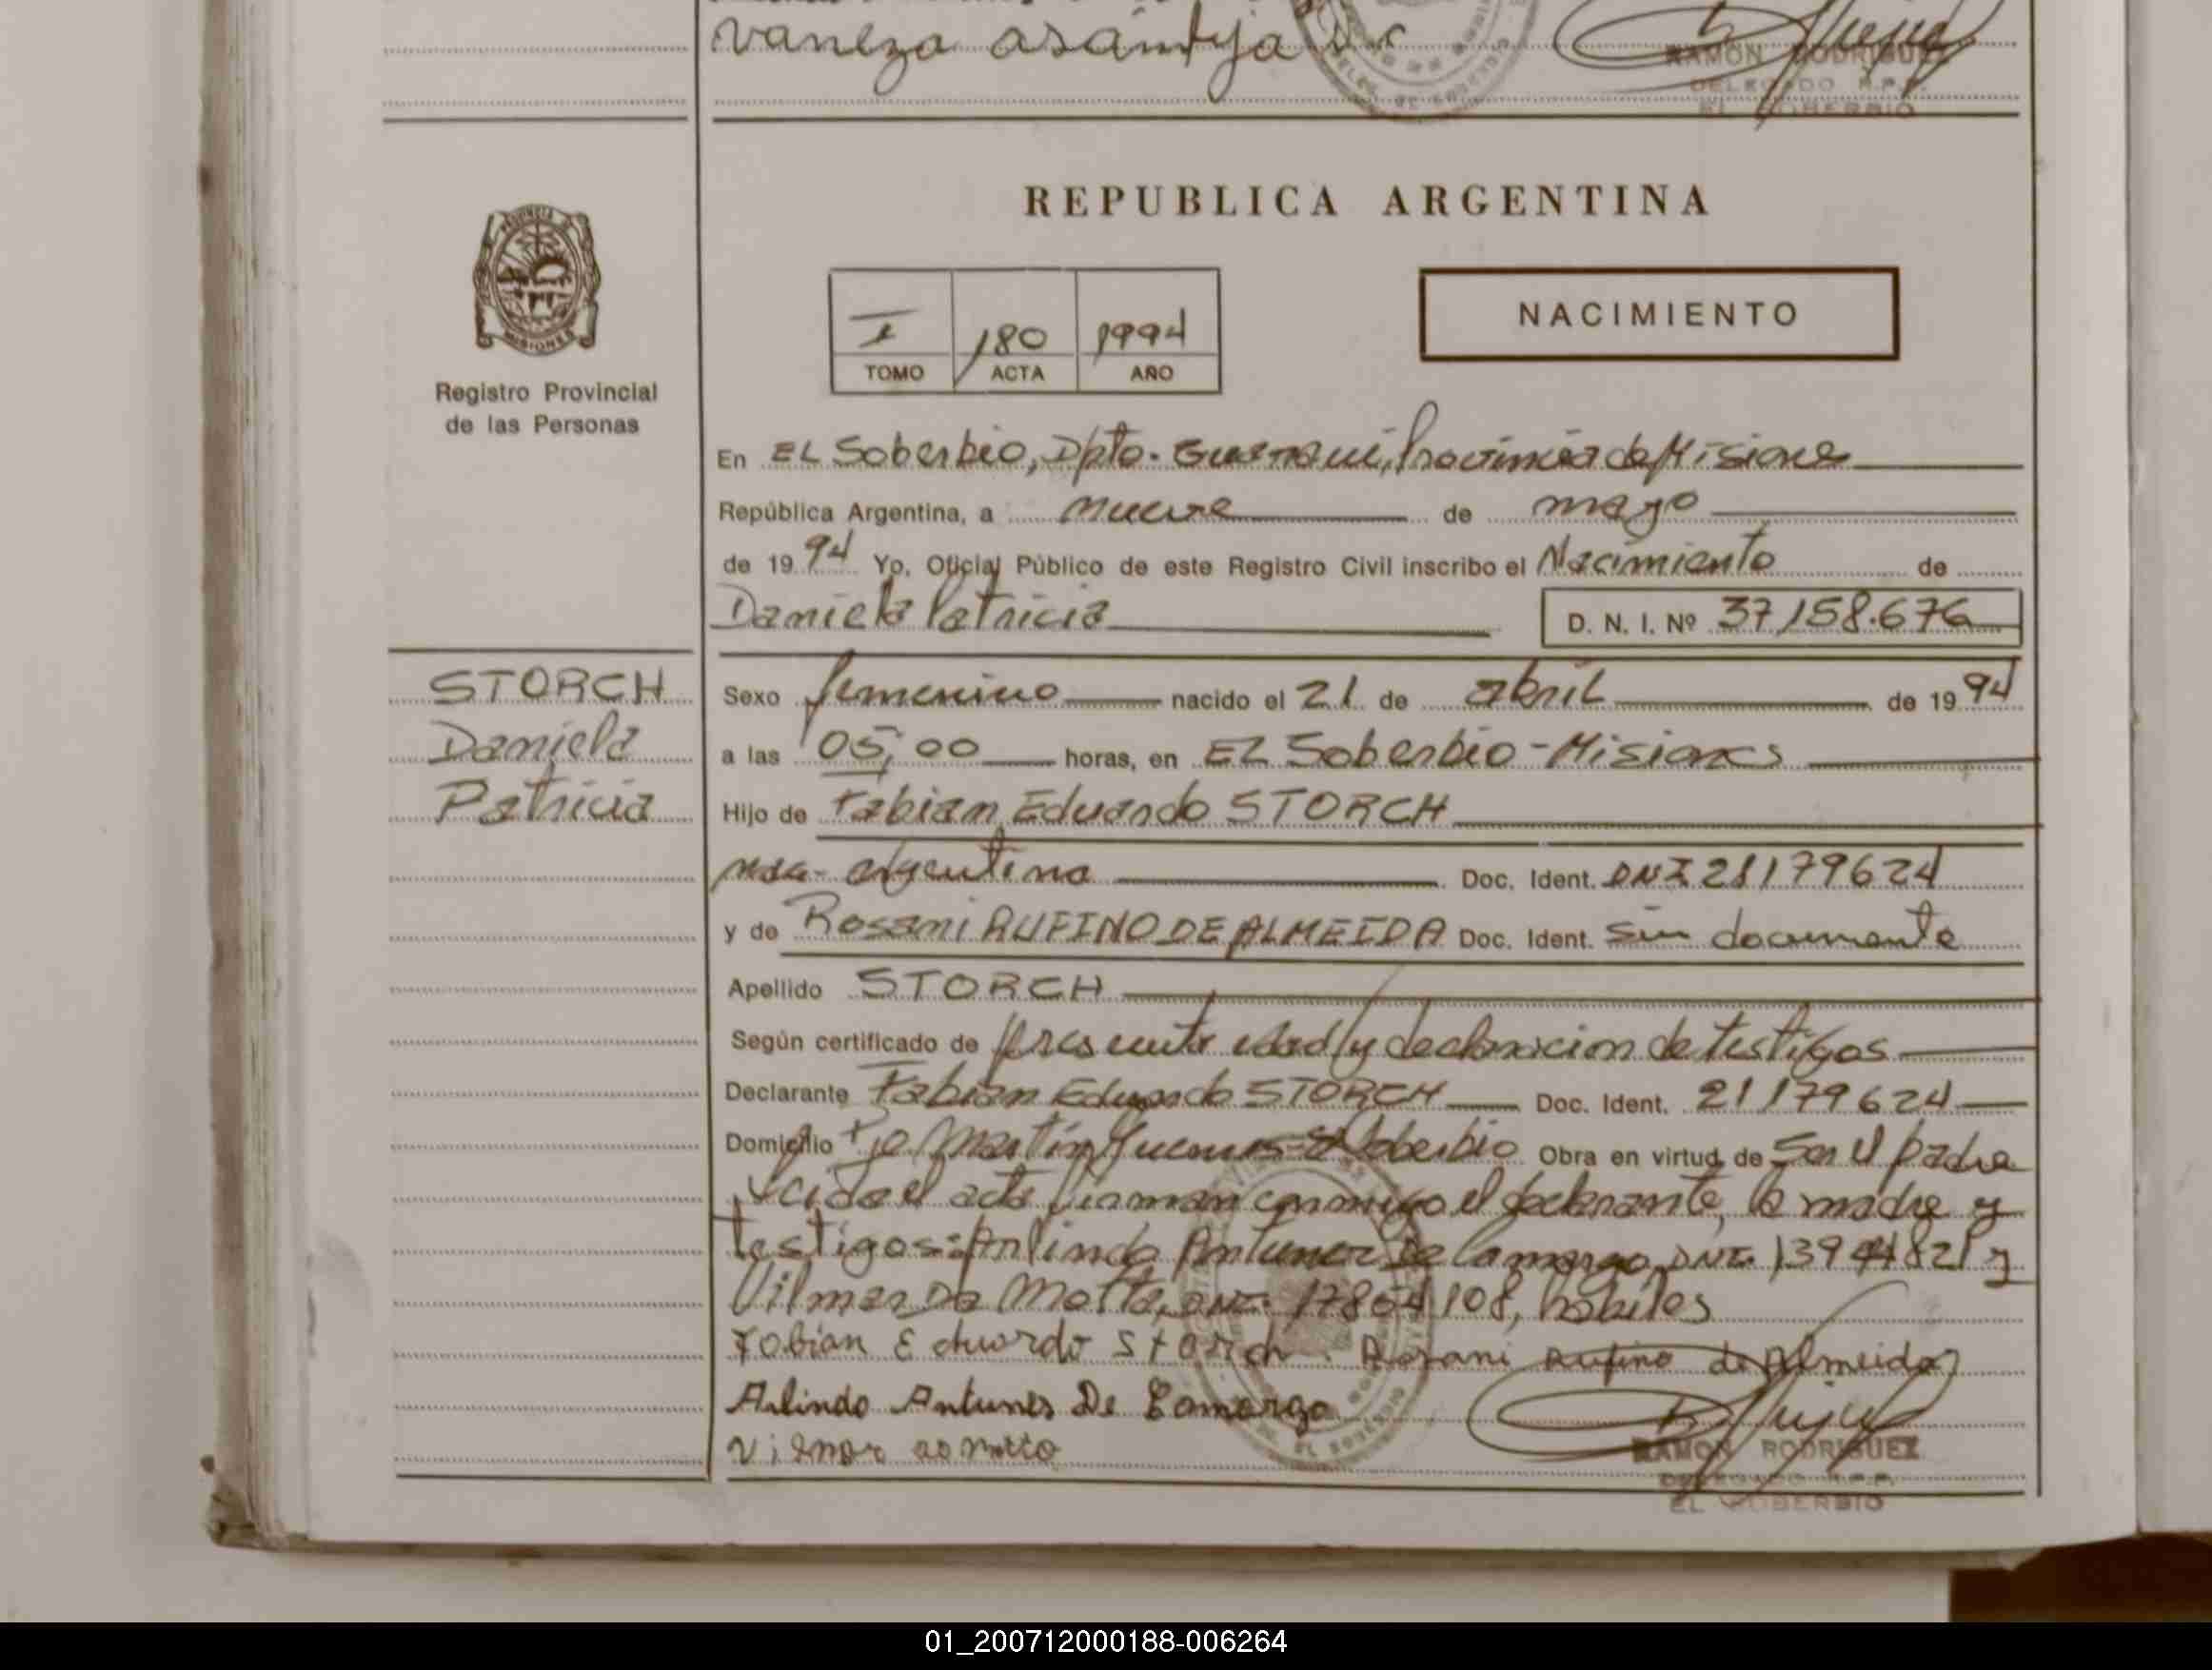 vaneza
RAMON RODRIGUEZ
DELEGADO R.P.P.
EL SOBERBIO
REPUBLICA ARGENTINA
PROVINCIA DE MISIONES
Registro Provincial
de las Personas
I 180 1994
TOMO ACTA AÑO
NACIMIENTO
En EL Soberbio, Dpto. Guaraní, Provincia de Misiones
República Argentina, a nueve de mayo
de 1994 Yo, Oficial Público de este Registro Civil inscribo el Nacimiento de
Daniela Patricia D. N. I. Nº 37,158.676
STORCH
Daniela
Patricia
Sexo femenino nacido el 21 de abril de 1994
a las 05,00 horas, en EL Soberbio - Misiones
Hijo de Fabian Eduardo STORCH
argentina Doc. Ident. DNI 21179624
y de Rosani RUFINO DE ALMEIDA Doc. Ident. Sin documento
Apellido STORCH
Según certificado de presunta edad y declaracion de testigos
Declarante Fabian Eduardo STORCH Doc. Ident. 21179624
Domicilio Pje Martin Guemes - El Soberbio Obra en virtud de Ser el padre
Leida el acta firman conmigo el declarante, la madre y
testigos: Arlindo Antunez De Camargo, DNI. 13944821 y
Vilmar Da Motta, DNI. 17864108, habiles
Fabian Eduardo Storch. Rosani Rufino de Almeida
Arlindo Antunes De Camargo
Vilmar da motta
RAMON RODRIGUEZ
DELEGADO R.P.P.
EL SOBERBIO
01_200712000188-006264